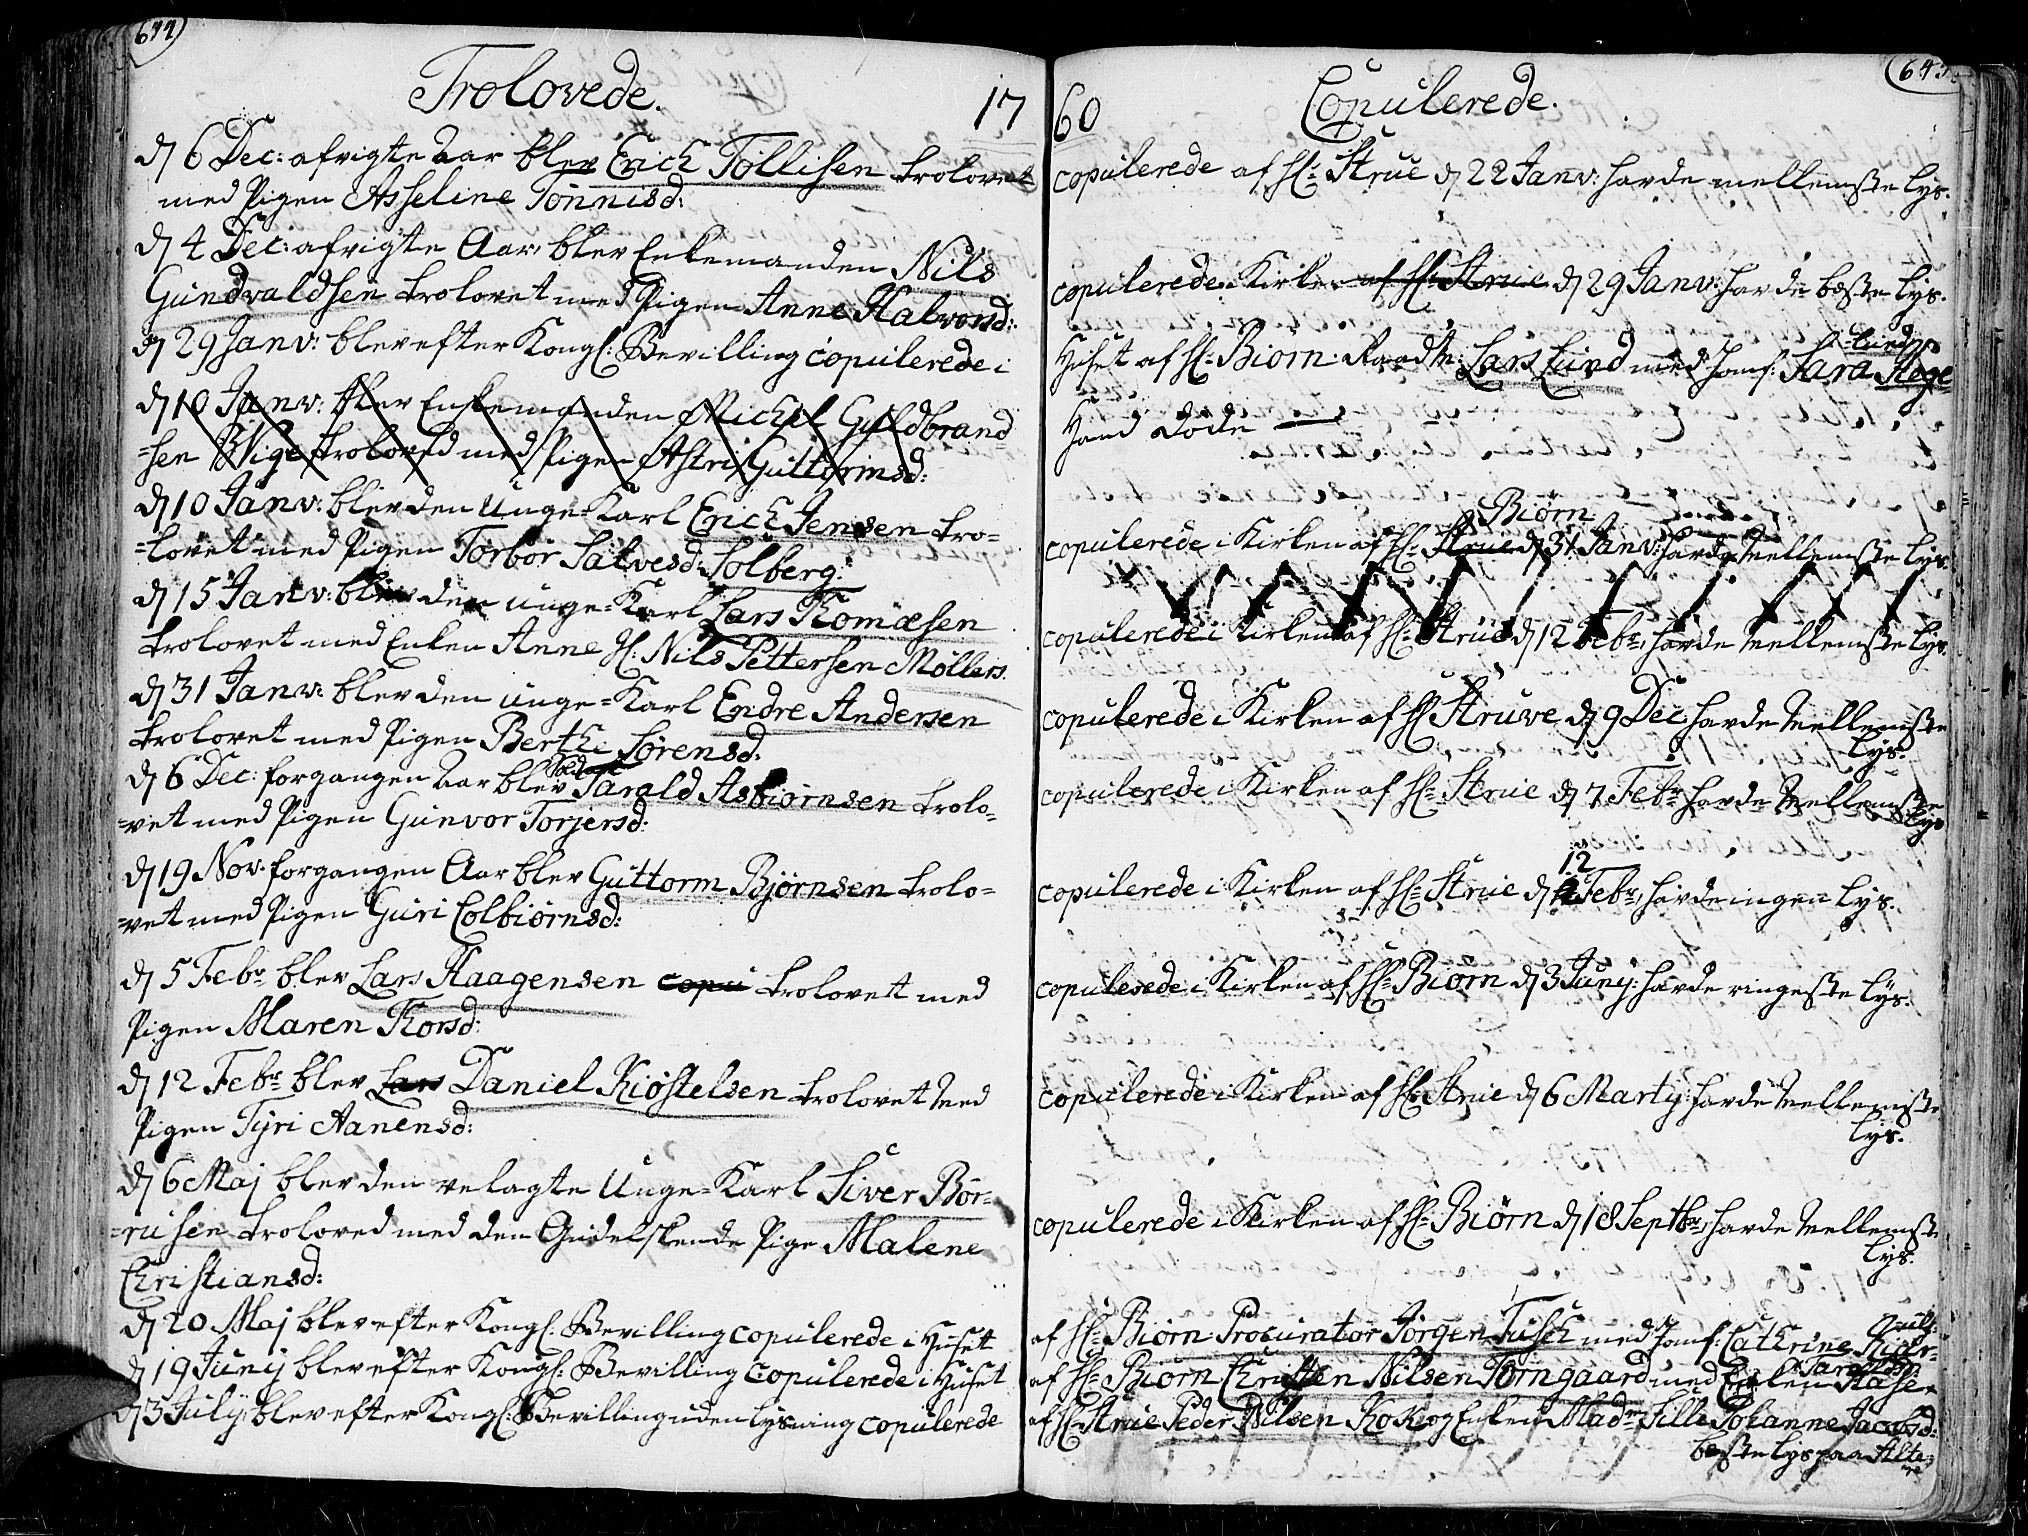 644
Trolovede.
17
d 6 Dec: afvigte Aar blev Erich Tollisen trolovet
med Pigen Asseline Tönnisd:
d 4 Dec: afvigte Aar blev Enkemanden Nils
Gundvaldsen trolovet med Pigen Anne Halvorsd:
d 29 Janv: blev efter Kongl: Bevilling copulerede i
d 10 Janv: blev Enkemanden Michel Guldbrand-
=sen Vige troloved med Pigen Astri Guttormsd:
d 10 Janv: blev den unge Karl Erich Jensen tro=
=lovet med Pigen Torbor Salvesd: Solberg:
d 15 Janv: blev den unge=Karl Lars Thomæsen
trolovet med Enken Anne Sl: Nils Pettersen Møllers.
d 31 Janv: blev den unge=Karl Endre Andersen
trolovet med Pigen Berthe Sørensd:
d 6 Dec: forgangen Aar blev Sarald Asbiørnsen trolo-
=vet med Pigen Gunvor Torjersd:
d 19 Nov: forgangen Aar blev Guttorm Bjørnsen trolo=
=vet med Pigen Guri Colbiørnsd:
d 5 Febr: blev Lars Haagensen copu trolovet med
Pigen Maren Thorsd:
d 12 Febr: blev Lars Daniel Kiøstelsen trolovet med
Pigen Tyri Aanensd:
d 6 Maj blev den velagte Unge=Karl Siver Bør=
=rusen troloved med den Gudelskende Pige Malene
Christiansd:
d 20 Maj blev efter Kongl: Bevilling copulerede i Huset
d 19 Juny blev efter Kongl: Bevilling copulerede i Huset
d 3 July: blev efter Kongl: Bevilling uden lysning copulerede
645
60
Copulerede.
copulerede af Hl: Strue d 22 Janv: havde mellemste lys.
copulerede i Kirken af Hl: Strue d 29 Janv: havde beste lys.
Lund
Huset af Hl: Biørn: Lars Lund med Jomf: Sara Hege
Hand døde
Biørn
copulerede i Kirken af Hl: Strue d 31 Janv: havde mellemste lys.
copulerede i Kirken af Hl: Strue d 12 Febr: havde mellemste lys.
copulerede i Kirken af Hl: Struwe d 9 Dec: havde mellemste
lys.
copulerede i Kirken af Hl: Strue d 7 Febr: havde mellemste
lys
12
copulerede i Kirken af Hl: Strue d Febr: havde ingen lys.
copulerede i Kirken af Hl: Biørn d 3 Juny: havde ringeste lys.
copulerede i Kirken af Hl: Strue d 6 Marty: havde mellemste
lys.
copulerede i Kirken af Hl: Biørn d 18 Septbr: havde mellemste
lys.
af Hl: Biørn Procurator Jørgen Tusch med Jomf: Cathrine
af Hl: Biørn Christen Nilsen Torngaard med Enken
af Hl: Strue Peder Nilsen Kok og Enken Mad: Sille Johanne Jacobsd:
beste lys paa Alte-